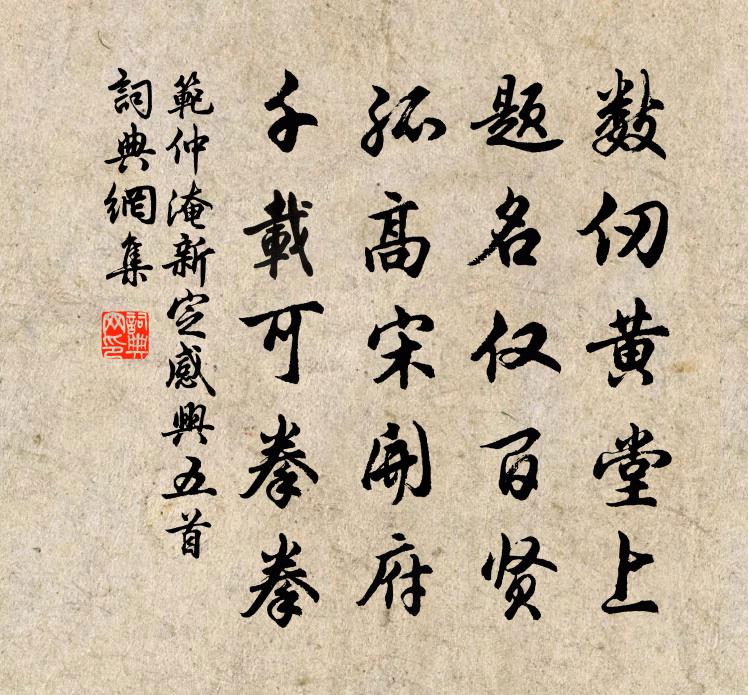 数仞黄堂上
题名仅百贤
孤高宋開府
千載可拳拳
範仲淹新定感興五首
詞典網集
詞典
网印